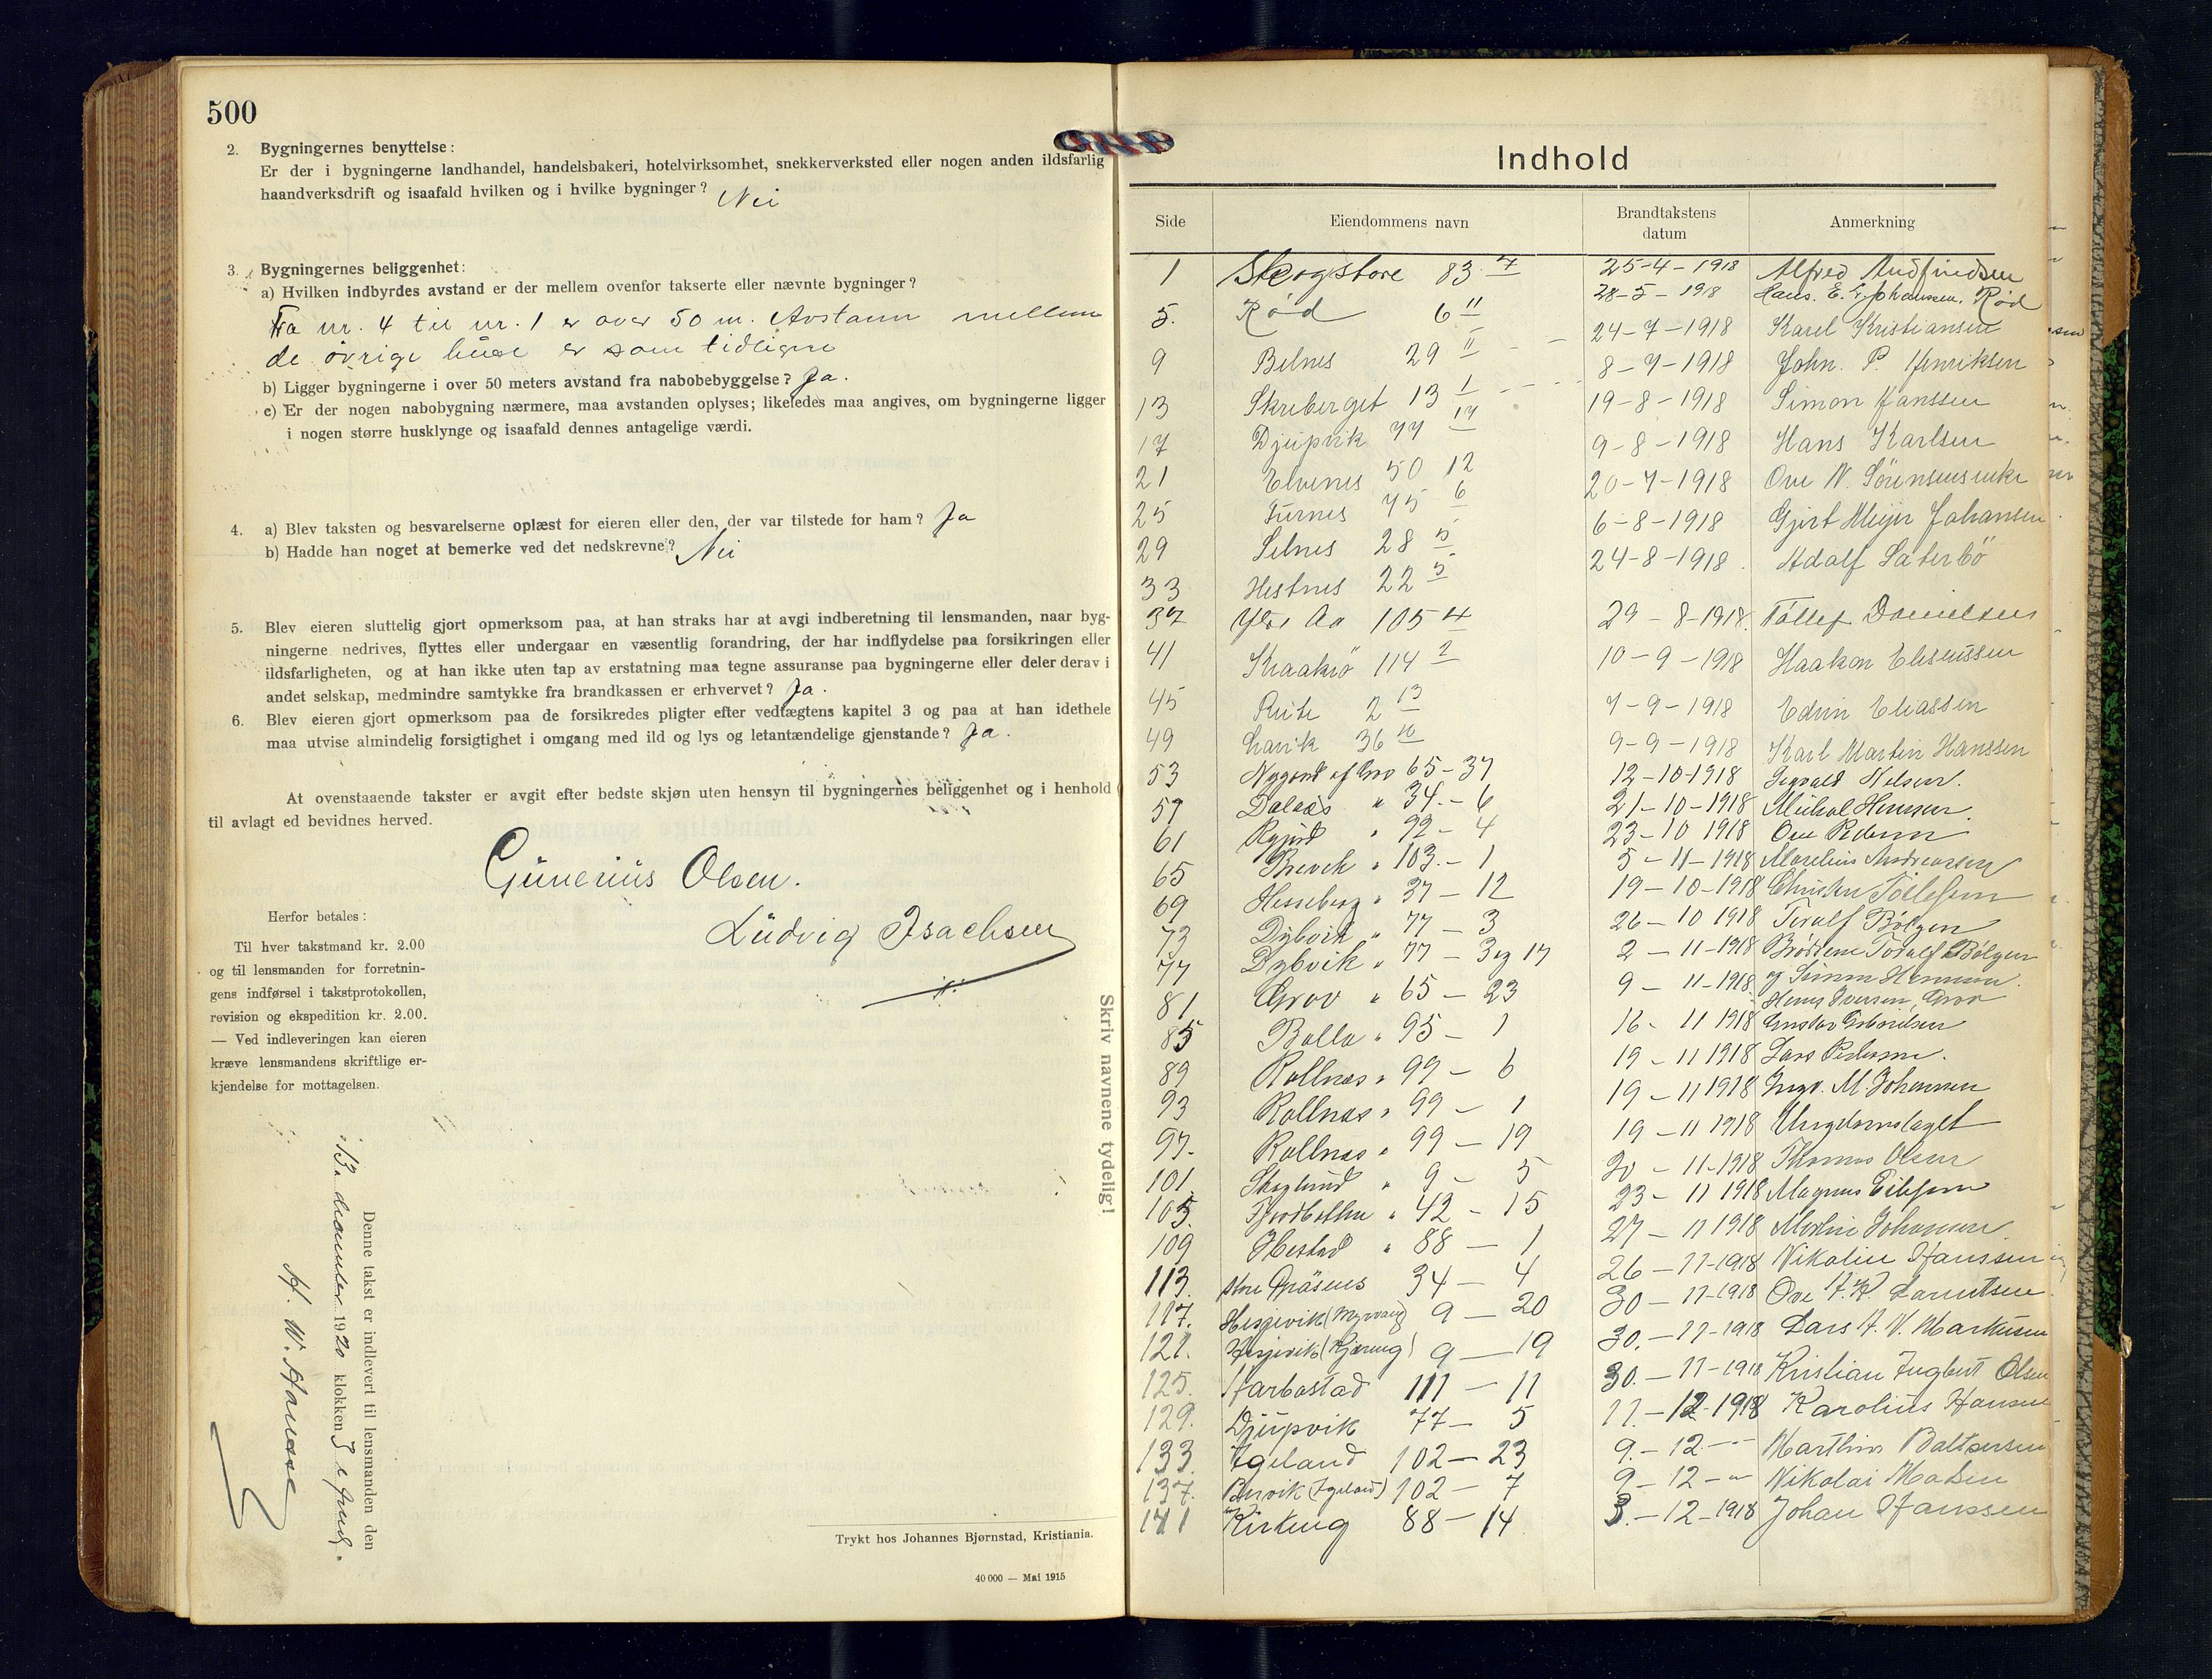 500
2. Bygningernes benyttelse:
Er der i bygningerne landhandel, handelsbakeri, hotelvirksomhet, snekkerverksted eller nogen anden ildsfarlig
haandverksdrift og isaafald hvilken og i hvilke bygninger? Nei
3. Bygningernes beliggenhet:
a) Hvilken indbyrdes avstand er der mellem ovenfor takserte eller nævnte bygninger?
Fra nr. 4 til nr. 1 er over 50 m. Avstann mellem
de övrige huse er som tidligere
b) Ligger bygningerne i over 50 meters avstand fra nabobebyggelse? Ja.
c) Er der nogen nabobygning nærmere, maa avstanden oplyses; likeledes maa angives, om bygningerne ligger
i nogen større husklynge og isaafald dennes antagelige værdi.
4. a) Blev taksten og besvarelserne oplæst for eieren eller den, der var tilstede for ham? Ja
b) Hadde han noget at bemerke ved det nedskrevne? Nei
5. Blev eieren sluttelig gjort opmerksom paa, at han straks har at avgi indberetning til lensmanden, naar byg-
ningerne nedrives, flyttes eller undergaar en væsentlig forandring, der har indflydelse paa forsikringen eller
ildsfarligheten, og at han ikke uten tap av erstatning maa tegne assuranse paa bygningerne eller deler derav i
andet selskap, medmindre samtykke fra brandkassen er erhvervet? Ja.
6. Blev eieren gjort opmerksom paa de forsikredes pligter efter vedtægtens kapitel 3 og paa at han idethele
maa utvise almindelig forsigtighet i omgang med ild og lys og letantændelige gjenstande? Ja.
At ovenstaaende takster er avgit efter bedste skjøn uten hensyn til bygningernes beliggenhet og i henhold
til avlagt ed bevidnes herved.
Gunerius Olsen.
Ludvig Isachsen
Herfor betales:
Til hver takstmand kr. 2.00
og til lensmanden for forretnin-
gens indførsel i takstprotokollen,
revision og ekspedition kr. 2.00.
— Ved indleveringen kan eieren
kræve lensmandens skriftlige er-
kjendelse for mottagelsen.
Denne takst er indlevert til lensmanden den
13. 1920 klokken 3 e
H. W. Hansse
Trykt hos Johannes Bjørnstad, Kristiania.
40 000 — Mai 1915
Skriv navnene tydelig!
Indhold
Side Eiendommens navn Brandtakstens datum Anmerkning
1 Skogstore 83 4 25-4-1918 Alfred Andfindsen
5. Rød 6 11 28-5-1918 Hans. E. G. Johanssen, Rød
9 Belnes 29 11 24-7-1918 Karel Kristiansen
13 Skreberget 13 1 8-7-1918 John. P. Henriksen
17 Djupvik 77 17 19-8-1918 Simon Hanssen
21 Elvenes 50 12 9-8-1918 Hans Karlsen
25 Furnes 75 6 20-7-1918 Ove N. Sörensens enke
29 Selnes 28 5 6-8-1918 Gjert Meyer Johansen
33 Hestnes 22 5 24-8-1918 Adolf Säterbö
37 Ytre Aa 105 4 29-8-1918 Töllef Danielsen
41 Kraakrö 114 2 10-9-1918 Haakon Eliseussen
45 2 13 7-9-1918 Edvin Eliassen
49 Lavik 36 10 9-9-1918 Karl Martin Hanssen
53 Nygaard af Grov 65-37 12-10-1918 Sigvald Nilsen.
57 Dalaas " 34.-6 21-10-1918 Mikal Hansen.
61 " 92-4 23-10 1918 Ove Pedersen
65 Brevik " 103.-1 5-11-1918 Marelius Andreassen
69 Hesseberg " 37-12 19-10-1918 Christen Tollefsen
73 Dybvik " 77-3 26-10 1918 Toralf Bölgen
77 Dybvik " 77-3 og 17 2-11-1918 Brødrene Toralf Bölgen
og Simon Hansen.
81 Grov " 65-23 9-11-1918 Henry Iversen, Grov
85 Bolla " 95-1 16-11 1918 Gustav
89 Rollnæs " 99-6 19-11 1918 Lars Pedersen.
93 Rollnæs " 99-1 19-11 1918 Ingv. M. Johansen
97. Rollnæs " 99-19 19-11 1918 Ungdomslaget
101 Skoglund " 9-5 20-11-1918 Thomas Olsen
105. Fjordbotten " 42-15 23-11 1918 Magnus Eilefsen
109 Hestad " 88-1 27-11 1918 Martin Johansen.
113. Store Gräsnes 34-4 26-11-1918 Nikoline Hanssen
117. Hesjevik (Myrvang) 9-20 30-11-1918 Ove A. K. Laruitsen
121. Hesjevik (Kjæreng) 9-19 30.-11-1918 Lars A. V. Markusen
125. Harbostad 111-11 30.-11-1918 Kristian Ingbert Olsen
129. Djupvik 77-5 11.-12-1918 Karolius Hansen
133. Igeland 102-23 9.-12-" Marthin Baltsersen
137. Bervik (Igeland) 102-7 9-12-" Nikolai Madsen
141 Kirkeng 88-14 3.-12-1918 Johan Hanssen